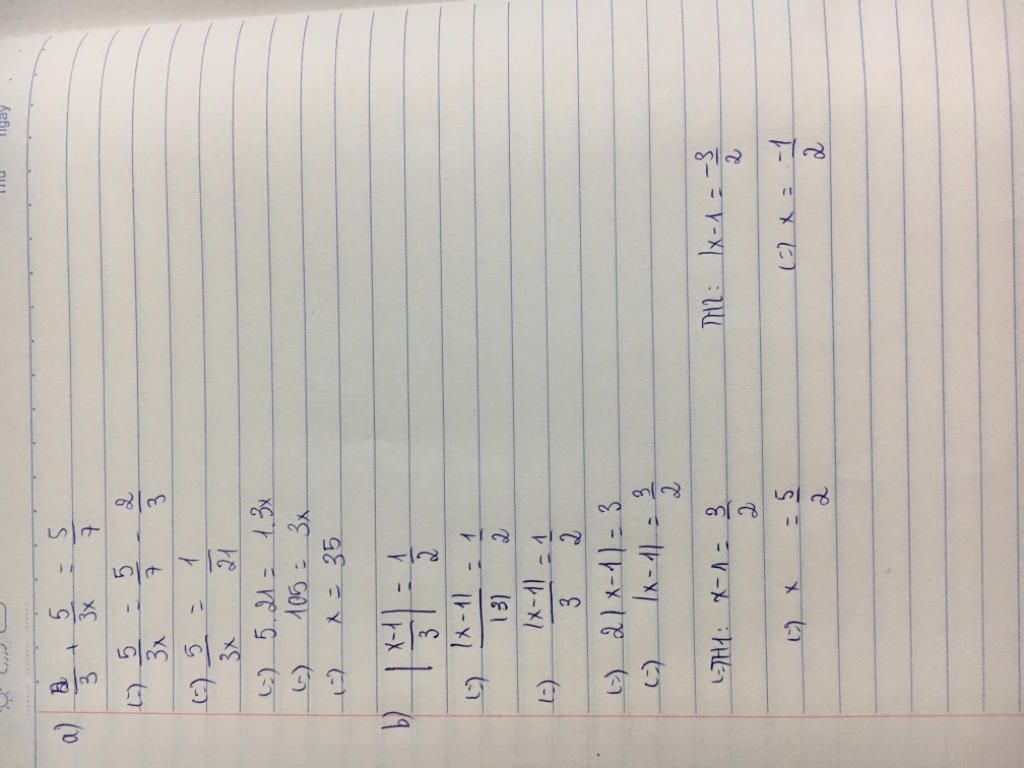 Thứ ngày
a) 2/3 + 5/3x = 5/7
(=) 5/3x = 5/7 - 2/3
(=) 5/3x = 1/21
(=) 5.21 = 1.3x
(=) 105 = 3x
(=) x = 35
b) |x-1/3| = 1/2
(=) |x-1|/|3| = 1/2
(=) |x-1|/3 = 1/2
(=) 2|x-1| = 3
(=) |x-1| = 3/2
(=) TH1: x-1 = 3/2 TH2: |x-1 = -3/2
(=) x = 5/2 (=) x = -1/2